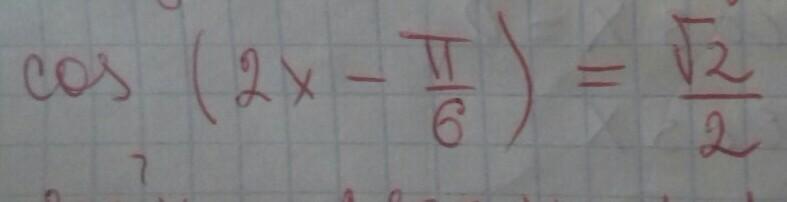 cos (2x - π/6) = √2/2